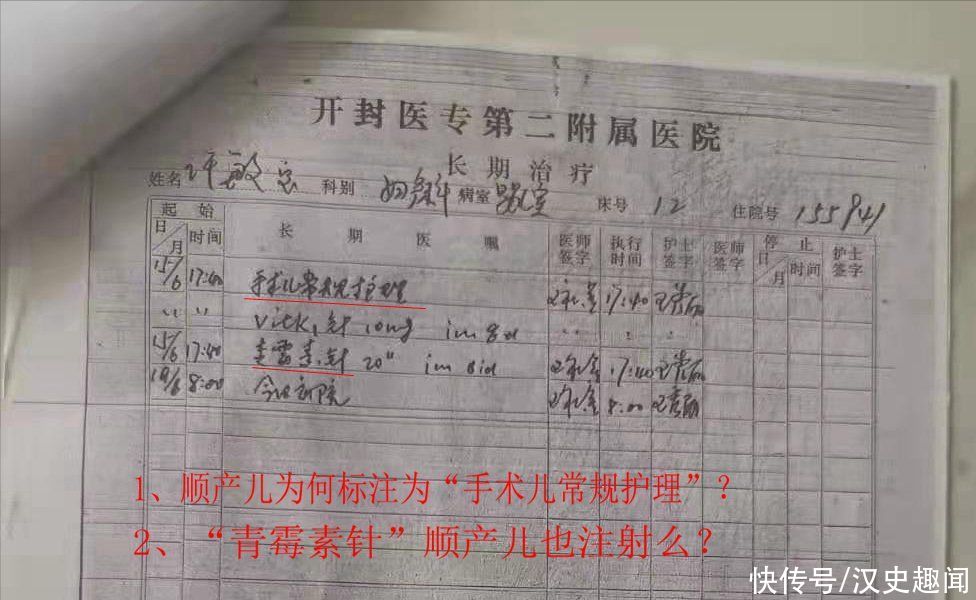 开封医专第二附属医院
长期治疗
姓名 许敏 科别 妇产科 病室 床号 12 住院号 155941
起始 长期医嘱 医师签字 执行时间 护士签字 医师签字 停止 护士签字
日/月 时间 日/月 时间
15/6 17:40 手术儿常规护理 17:40
〃 〃 Vitk1针 10mg im qd
15/6 17:40 青霉素针 20" im bid 17:40
8:00 今日出院 8:00
1、顺产儿为何标注为“手术儿常规护理”？
2、“青霉素针”顺产儿也注射么？
快传号/汉史趣闻